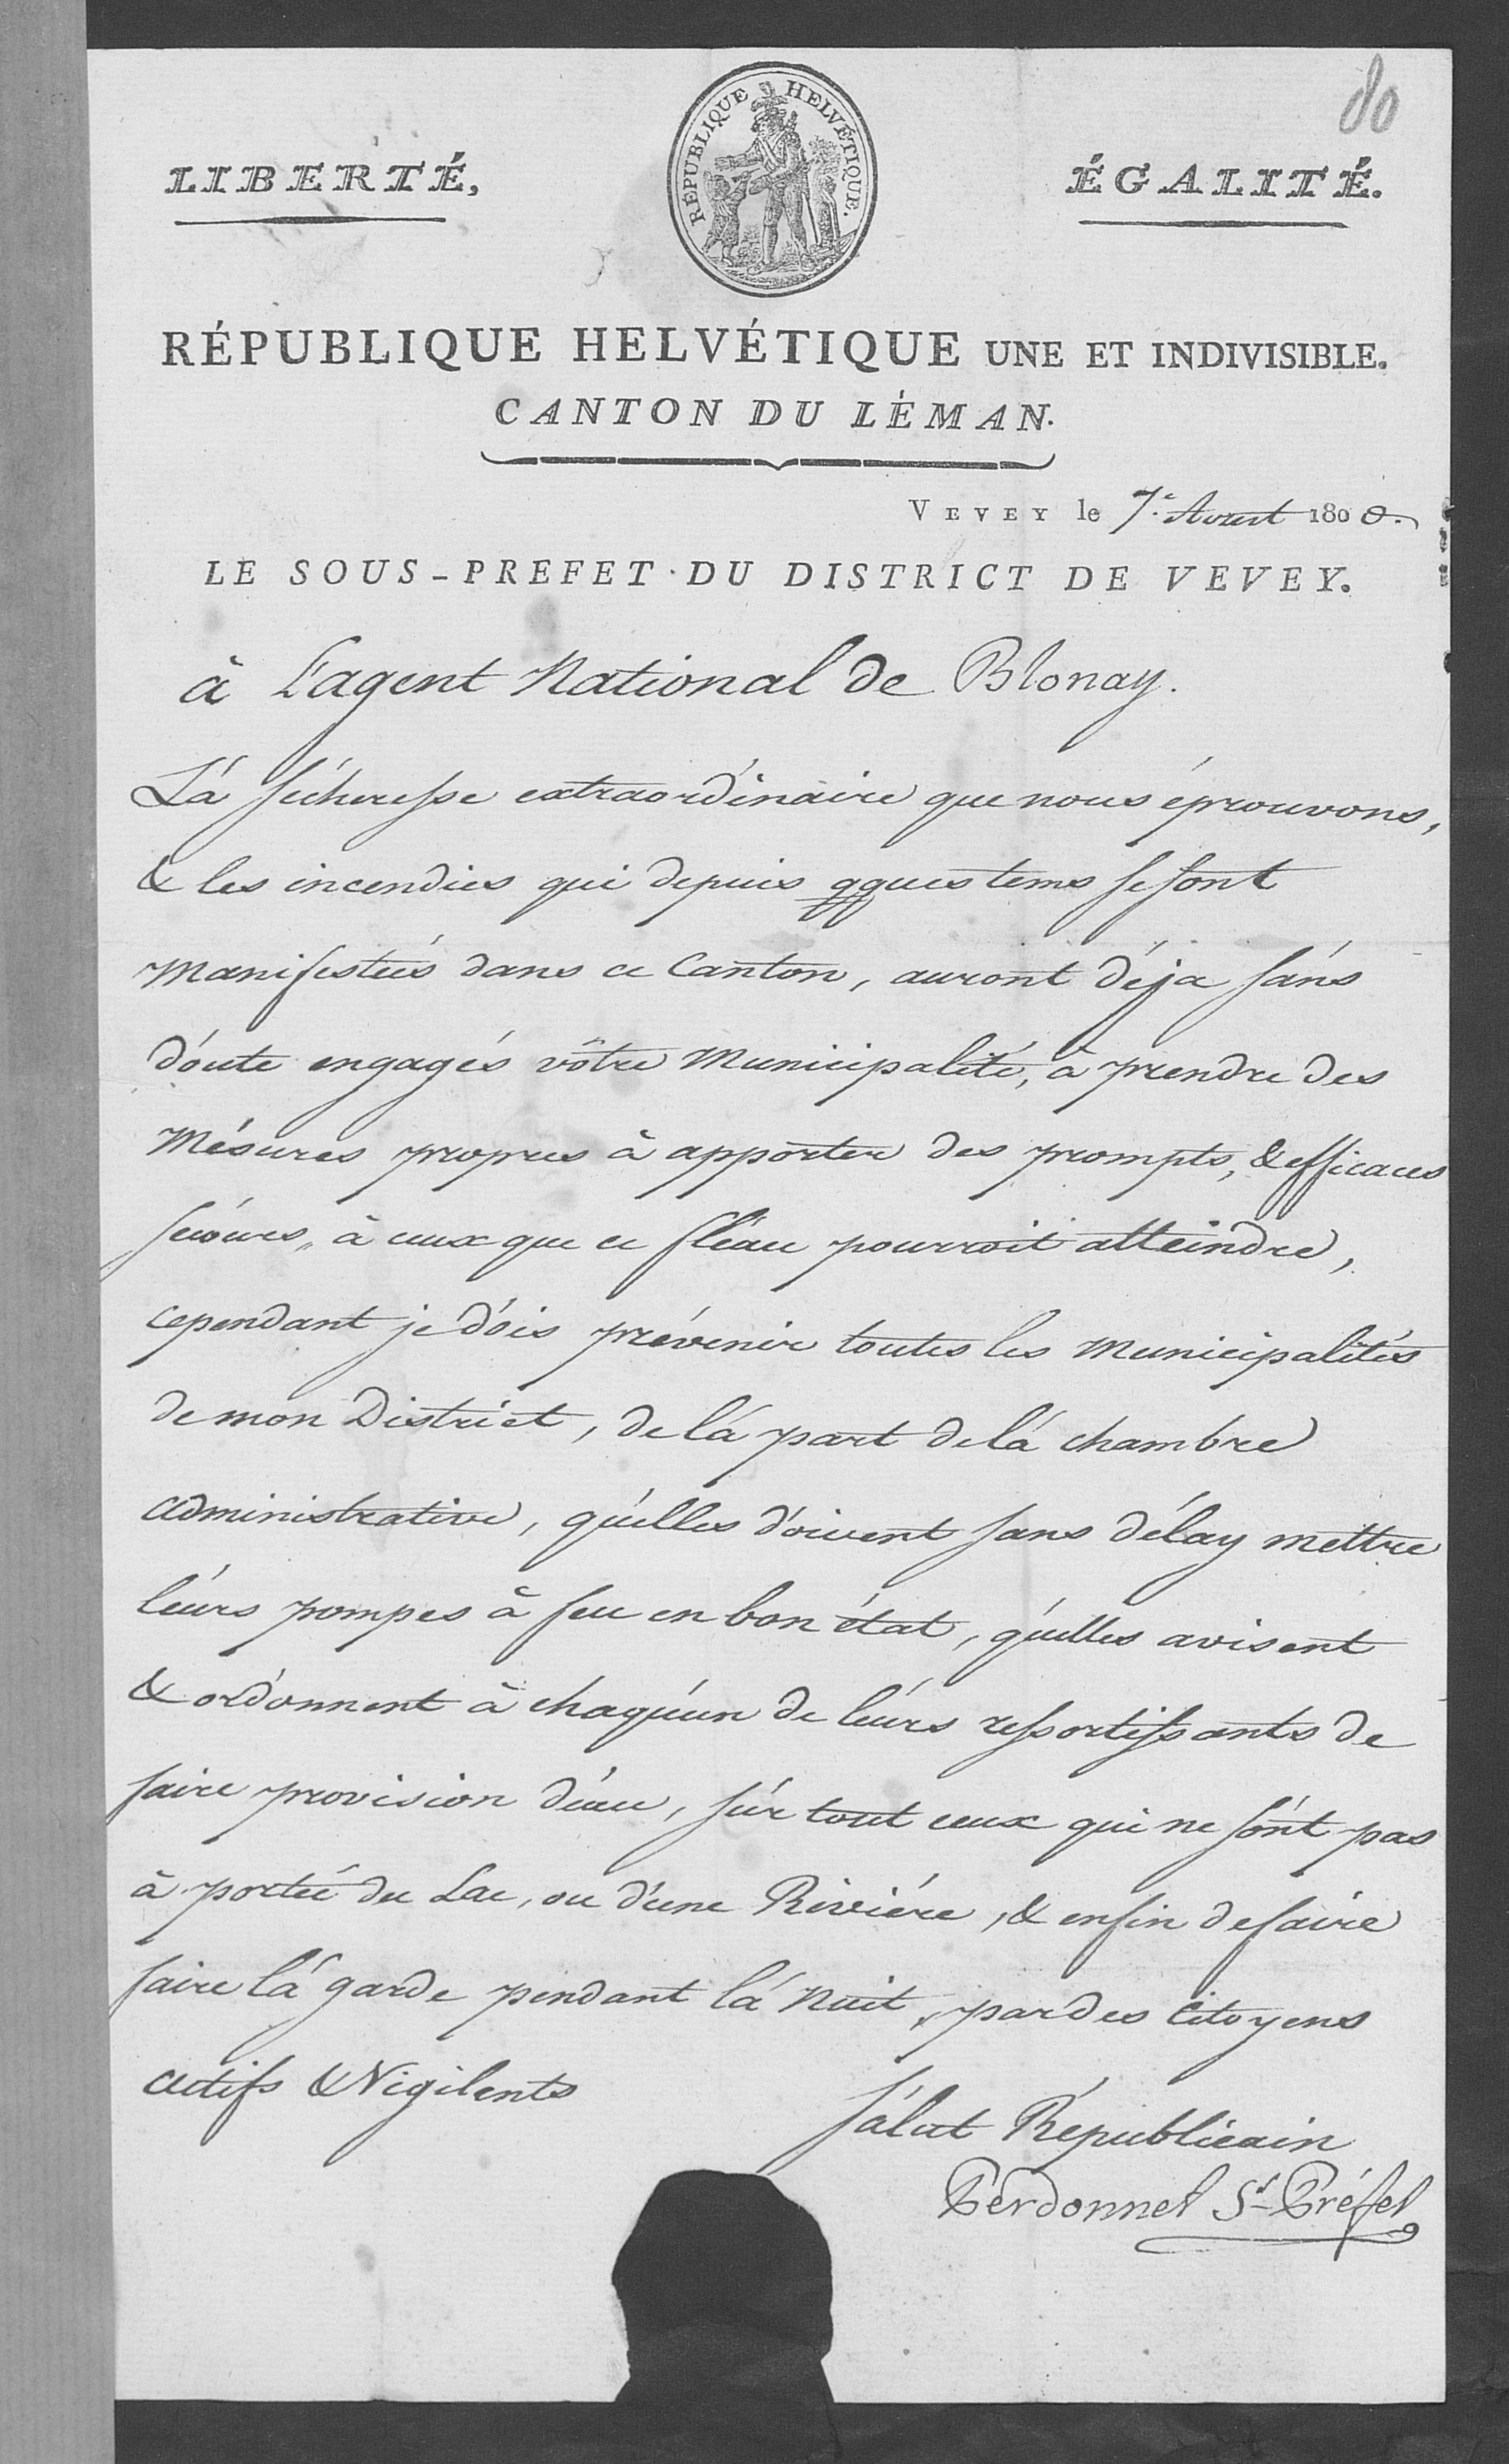 80
LIBERTÉ,
RÉPUBLIQUE HELVÉTIQUE.
ÉGALITÉ.
RÉPUBLIQUE HELVÉTIQUE UNE ET INDIVISIBLE.
CANTON DU LÉMAN.
VEVEY le 7.e Aoust 1800.
LE SOUS-PREFET DU DISTRICT DE VEVEY.
à L'agent National de Blonay.
Lá sécheresse extraordinaire que nous éprouvons,
& les incendies qui depuis qques tems se sont
Manifestés dans ce Canton, auront déja sáns
doute engagés vôtre Municipalité, à prendre des
Mésures propres à apporter des prompts, & efficaces
secours, à ceux que ce fléau pourroit atteindre,
cependant je dois prévenir toutes les Municipalités
de mon District, de lá part de lá chambre
administrative, qu'elles doivent sans délay mettre
leurs pompes à feu en bon état, qu'elles avisent
& ordonnent à chaqu'un de leurs ressortissants de
faire provision d'eau, sur tout ceux qui ne sont pas
à portée du Lac, ou d'une Riviére, & enfin de faire
faire lá garde pendant lá Nuit, par des Citoyens
actifs & Vigilents
Sálut Républicain
Perdonnet S.s-Préfet